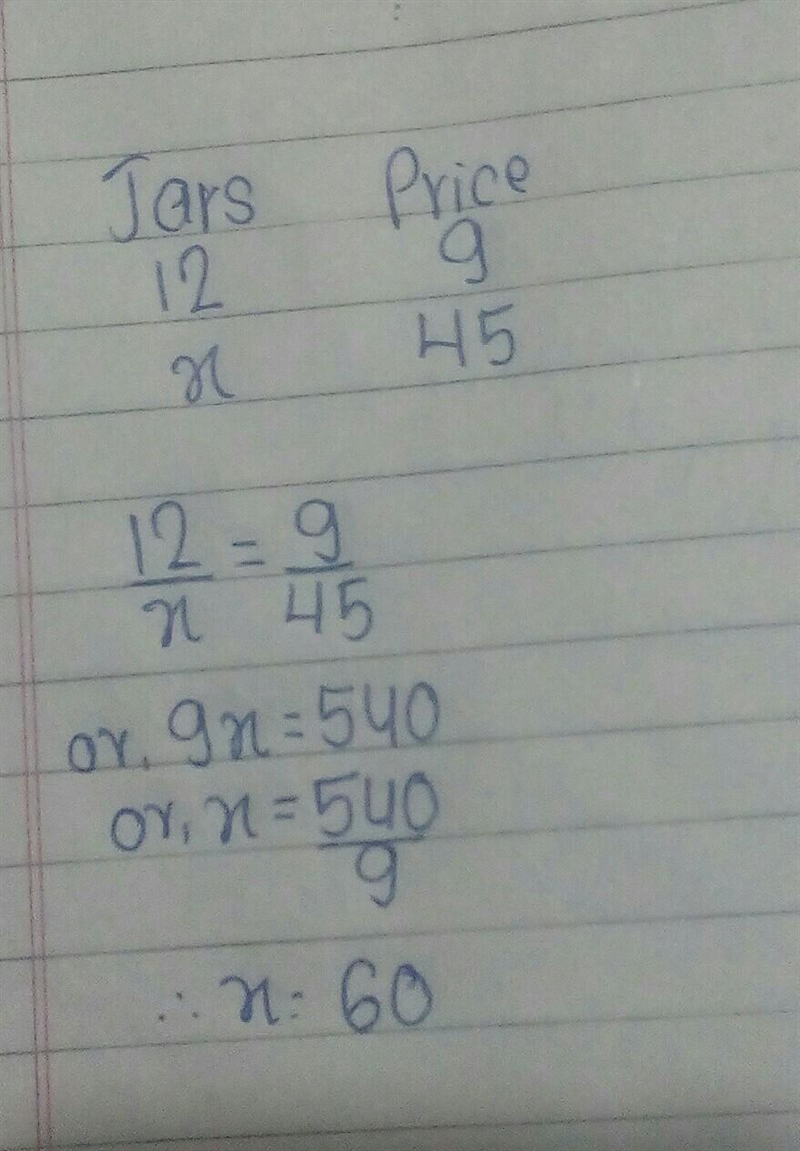 Jars Price
12 9
x 45
12/x = 9/45
or, 9x = 540
or, x = 540/9
∴ x = 60